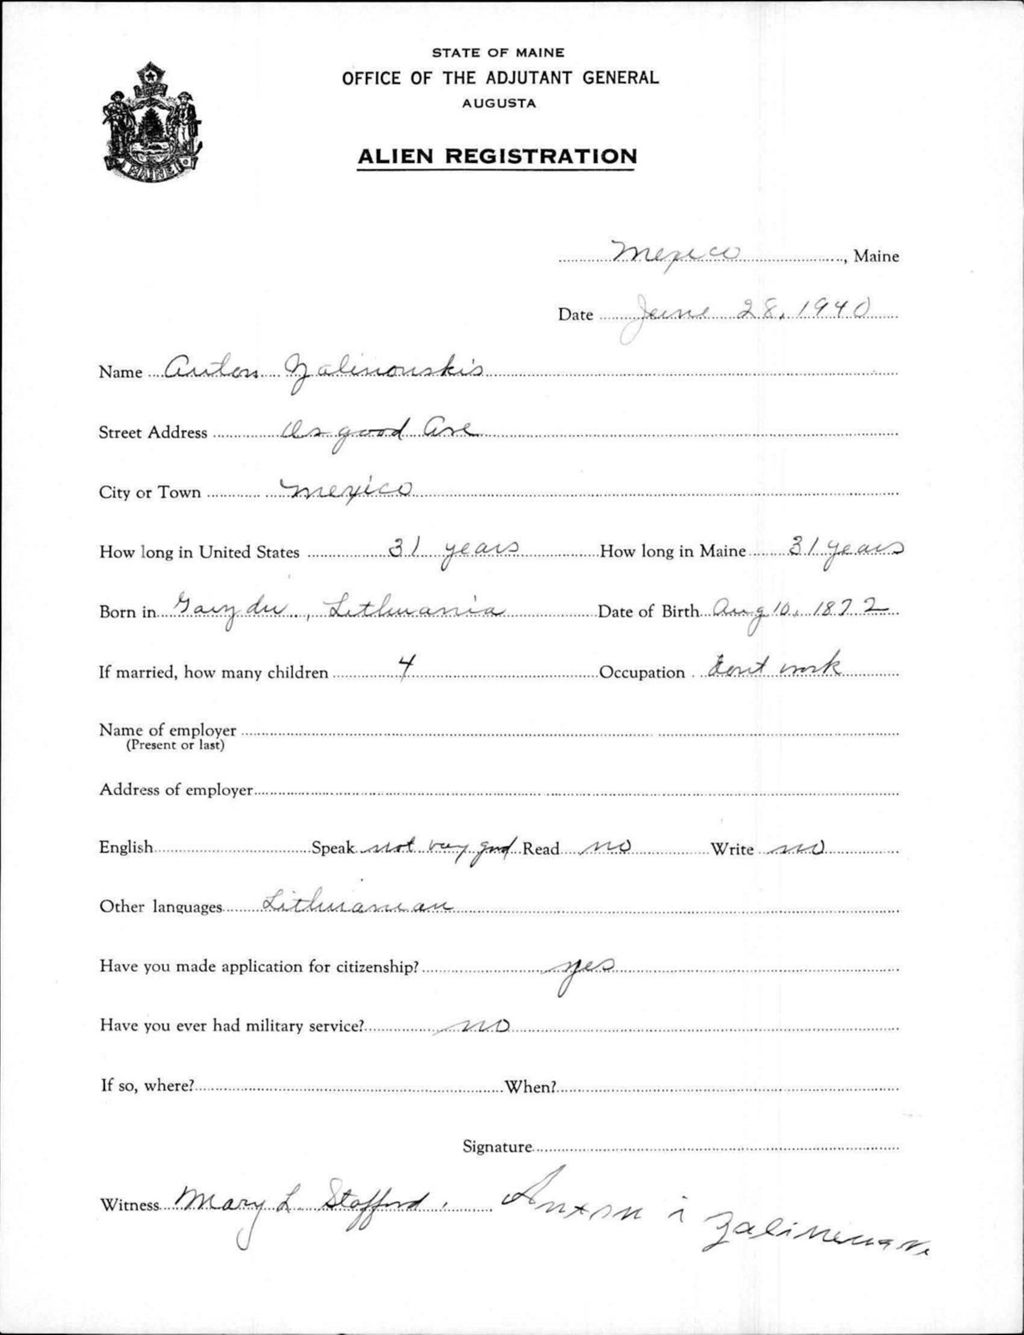 STATE OF MAINE
OFFICE OF THE ADJUTANT GENERAL
AUGUSTA
ALIEN REGISTRATION
MAINE
Mexico, Maine
Date June 28, 1940
Name Anton Zalinouskis
Street Address Osgood Ave
City or Town Mexico
How long in United States 31 years How long in Maine 31 years
Born in , Lithuania Date of Birth Aug 10, 1872
If married, how many children 4 Occupation Dont work
Name of employer
(Present or last)
Address of employer
English Speak not very good Read no Write no
Other languages Lithuanian
Have you made application for citizenship? yes
Have you ever had military service? no
If so, where? When?
Signature
Witness Mary L. Stafford. Anton i